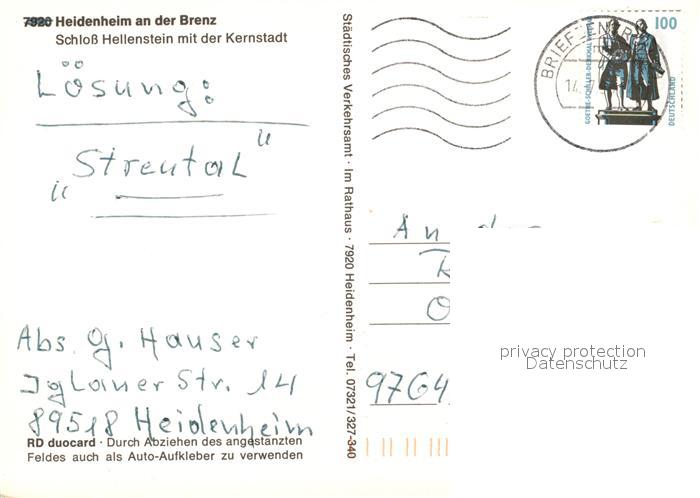 7920 Heidenheim an der Brenz
Schloß Hellenstein mit der Kernstadt
Lösung:
"Streutal"
Abs. G. Hauser
Iglauer Str. 14
89518 Heidenheim
RD duocard · Durch Abziehen des angestanzten
Feldes auch als Auto-Aufkleber zu verwenden
Städtisches Verkehrsamt · Im Rathaus · 7920 Heidenheim · Tel. 07321/327-340
BRIEFZENTR
100
GOETHE-SCHILLER-DENKMAL WEIMAR
DEUTSCHLAND
An
9764
privacy protection
Datenschutz